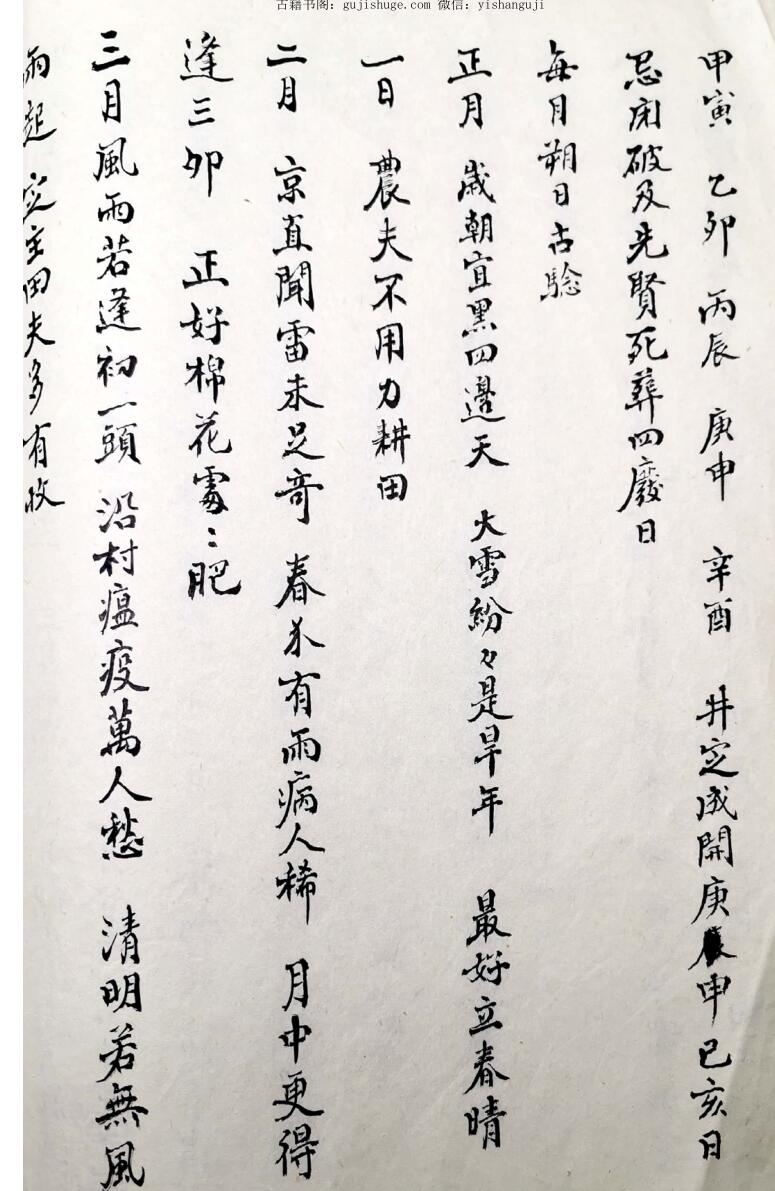 古籍书阁：gujishuge.com 微信：yishanguji
甲寅 乙卯 丙辰 庚申 辛酉 井定成開庚申巳亥日
忌閉破及先賢死葬四廢日
每月朔日占驗
正月 歲朝宜黑四邊天 大雪紛々是旱年 最好立春晴
一日 農夫不用力耕田
二月 京直聞雷未足奇 春 有雨病人稀 月中更得
逢三卯 正好棉花處〻肥
三月風雨若逢初一頭 沿村瘟疫萬人愁 清明若無風
雨起 定主田夫多有收